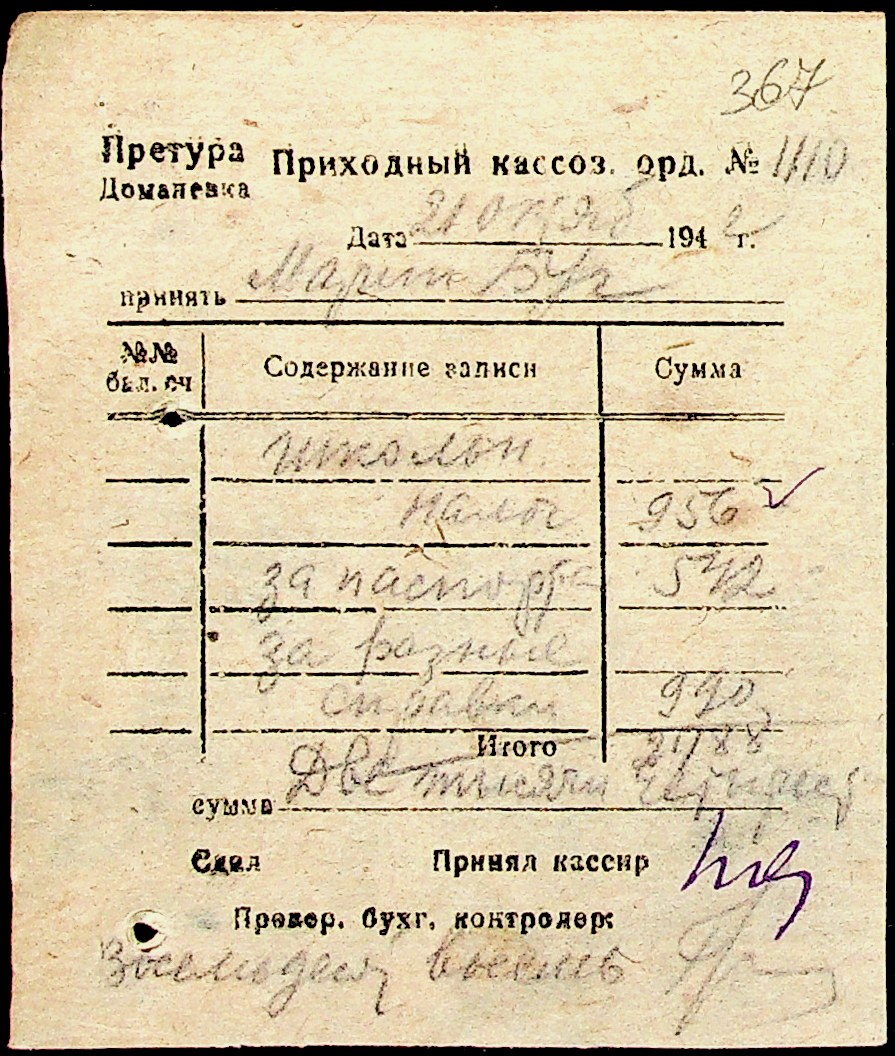 367
Претура
Домановка
Приходный кассов. орд. № 1110
Дата 21 октяб 1942 г.
принять
№№ бал. сч
Содержание записи
Сумма
школьн.
налог 956
за паспорта 542
за разные
справки 990
Итого 2488
сумма Две тысячи четырест
Сдал Принял кассир
Провер. бухг. контролер:
восемьдесят восемь